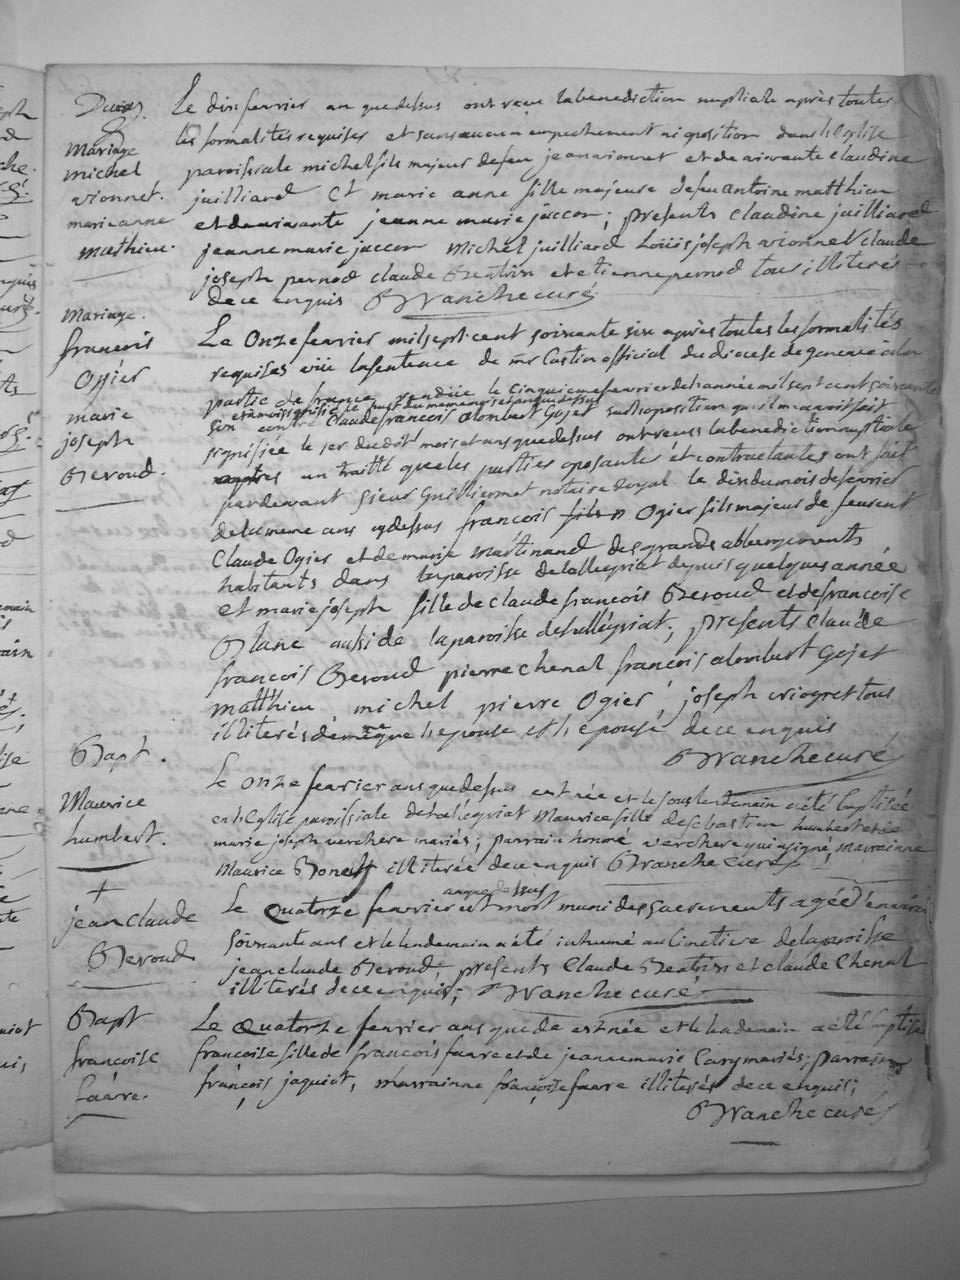 Mariage
michel
vionnet.
marie anne
mathieu.
Le dix fevrier an que dessus ont receu la benediction nuptiale après toutes
les formalités requises et sans aucun empechement ni oposition dans l'Eglise
paroissiale michel fils majeur de feu jean vionnet et de vivante claudine
juilliard Et marie anne fille majeure de feu antoine matthieu
et de vivante jeanne marie jaccon; presents claudine juilliard
jeanne marie jaccon michel juilliard Loüis joseph vionnet claude
joseph pernod claude et etienne pernod tous illiterés
de ce enquis Blanche curé
Mariage.
francois
Ogier
marie
joseph
Beroud.
Le Onze fevrier mil sept cent soixante six après toutes les formalités
requises vüe la sentence de mr Castin official du diocese de geneve a la
partie de france rendüe le Cinquieme fevrier de l'année mil sept cent soixante
six contre Claude francois alombert Gojet sur l'oposition qu'il m'auroit fait
signifiée le 1er du dit mois et ans que dessus ont receus la benediction nuptiale
après un traitté que les parties oposantes et contractantes ont fait
par devant Sieur Guilliermet notaire royal le dix du mois de fevrier
de la meme ans que dessus francois Ogier fils majeur de feu rent
Claude Ogier et de marie martinand des grands abbergements
habitants dans la paroisse de lalleyriat depuis quelques année
et marie joseph fille de claude francois Beroud et de francoise
Blanc aussi de la paroisse de lalleyriat, presents claude
francois Beroud pierre chenal francois alombert Gojet
matthieu michel pierre Ogier, joseph tous
illiterés de meme que l'epouse et l'epouse de ce enquis
Blanche curé
Bapt.
Maurice
humbert.
Le onze fevrier ans que dessus est née et le sous lendemain a été baptisée
en l'Eglise paroissiale de lalleyriat Maurice fille de sebastien humbert et de
marie joseph verchere mariés; parrain honoré verchere qui a signé marrainne
Maurice illiterée de ce enquis Blanche curé
+
jean claude
Beroud
Le Quatorze fevrier an que dessus est mort muni des sacrements agée d'environ
Soixante ans et le lendemain a été inhumé au Cimetiere de la paroisse
jean claude Beroud; presents Claude et claude Chenal
illiterés de ce enquis; Blanche curé
Bapt
francoise
faure.
Le Quatorze fevrier ans que de est née et le lendemain a été baptisé
francoise fille de francois faure et de jeanne marie Cary mariés; parrain
francois jaquiot, marrainne francoise faure illiterés de ce enquis;
Blanche curé